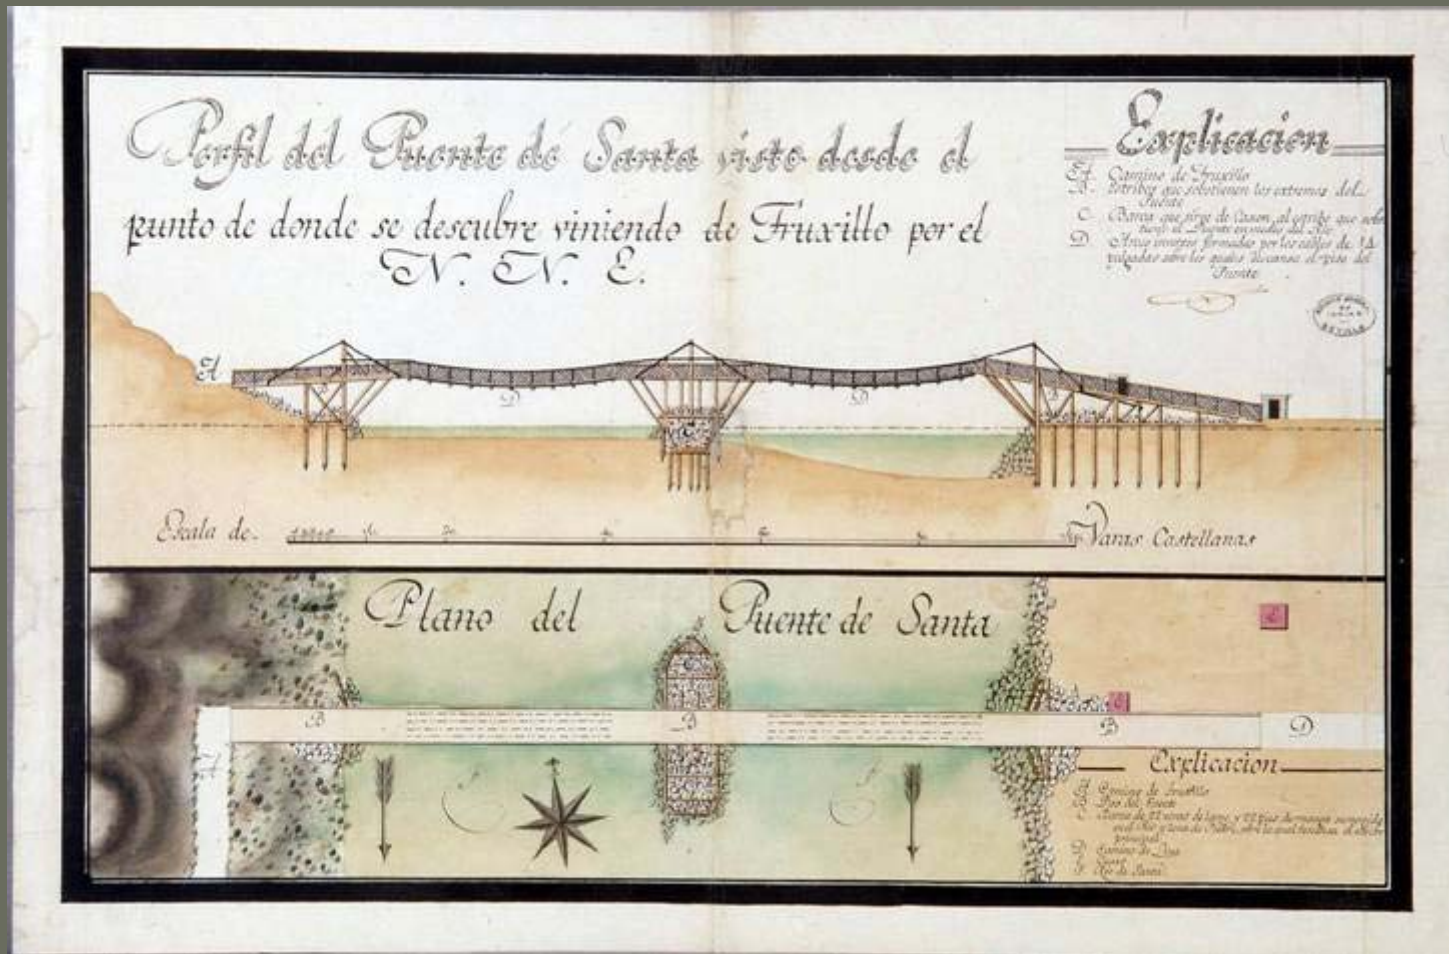 Perfil del Puente de Santa visto desde el
punto de donde se descubre viniendo de Truxillo por el
N. N. E.
Explicacion
A. Camino de Truxillo
B. Estribos que sobstienen los extremos del
Puente
C. Barca que sirge de Caxon, al estribo que sobs
tiene el Puente en medio del Rio
D. Arcos inversos formados por los cables de 14
pulgadas sobre los quales descansa el piso del
Puente
SEVILLA
A
B
D
C
D
B
Escala de
Varas Castellanas
Plano del Puente de Santa
C
E
E
B
B
B
D
A
F
F
Explicacion
A. Camino de Truxillo
B. Piso del Puente
C. Barca de 22 varas de largo y
en el Rio y llena de Piedra, sobre la qual
principal
D. Camino de Lima
F. Rio de Santa